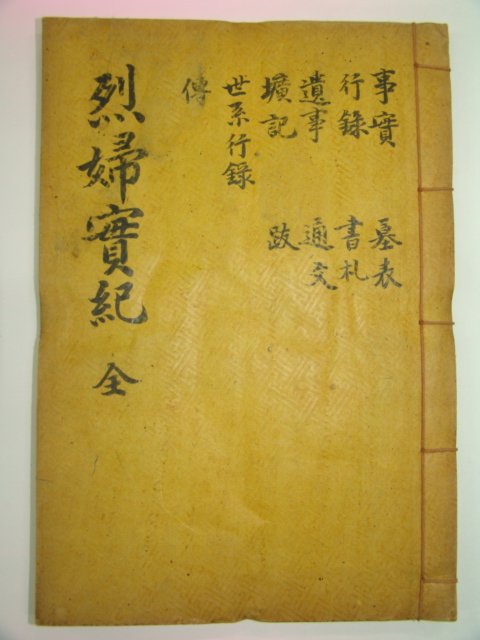 事實
行錄
遺事
壙記
世系行錄
傳
墓表
書札
通文
跋
烈婦實紀 全